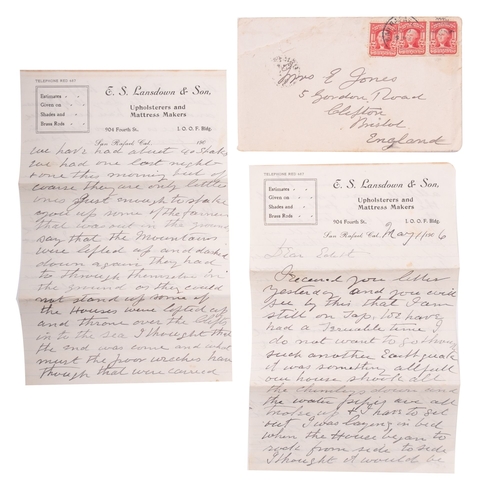 Mrs E Jones
5 Gordon Road
Clifton
Bristol
England
TELEPHONE RED 467
Estimates
Given on
Shades and
Brass Rods
T. S. Lansdown & Son,
Upholsterers and
Mattress Makers
904 Fourth St. I. O. O. F. Bldg.
San Rafael, Cal., May 1 1906
Dear
I received your letter
yesterday and you will
see by this that I am
still on Top, We have
had a Terrable time, I
do not want to go through
such another Earth quake
it was something all full
our house shook all
the Chimleys down and
the water pipes are all
broke up & I have to get
out I was laying in bed
when the House began to
rock from side to side
I thought it would be
TELEPHONE RED 467
Estimates
Given on
Shades and
Brass Rods
T. S. Lansdown & Son,
Upholsterers and
Mattress Makers
904 Fourth St. I. O. O. F. Bldg.
San Rafael, Cal., 190
we have had about 40 shakes
we had one last night
one this morning but of
course they are only little
ones just enough to shake
you up some of the farmers
that was out in the
say that the Mountains
were lifted up and dashed
down again they had
to through themselves on
the ground as they could
not stand up some of
the Houses were lifted up
and throne over the
in to the sea I thought that
the end was come and what
must the poor wreches have
though that were carried